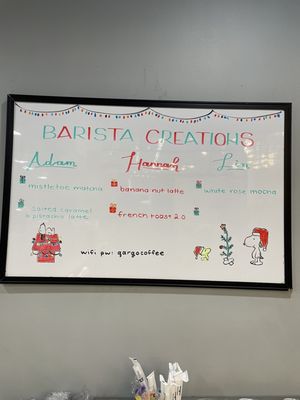 BARISTA CREATIONS
Adam
Hannah
Lin
mistletoe matcha
banana nut latte
white rose mocha
salted caramel
pistachio latte
french roast 2.0
wifi pw: gargocoffee